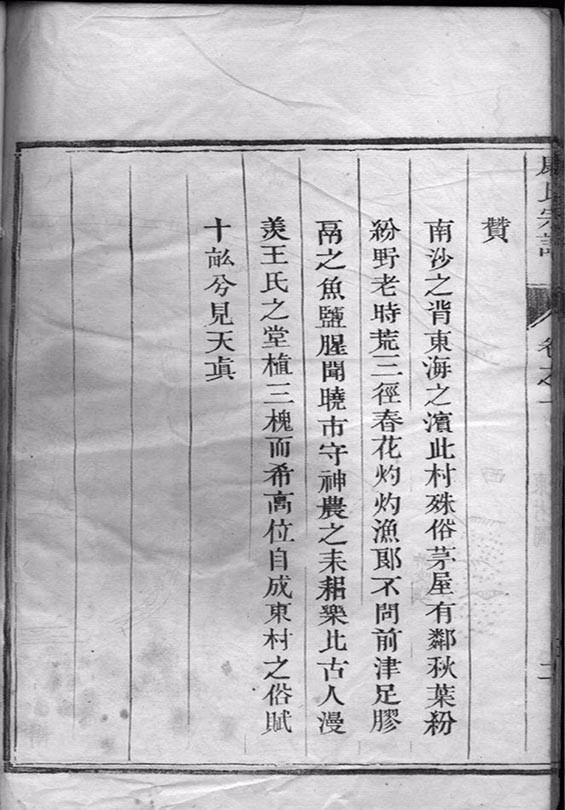 氏宗譜 卷之一 二
贊
南沙之背東海之濱此村殊俗茅屋有鄰秋葉粉
紛野老時荒三徑春花灼灼漁郎不問前津足膠
鬲之魚鹽腥聞曉市守神農之耒耜樂比古人漫
羨王氏之堂植三槐而希高位自成東村之俗賦
十畝兮見天眞